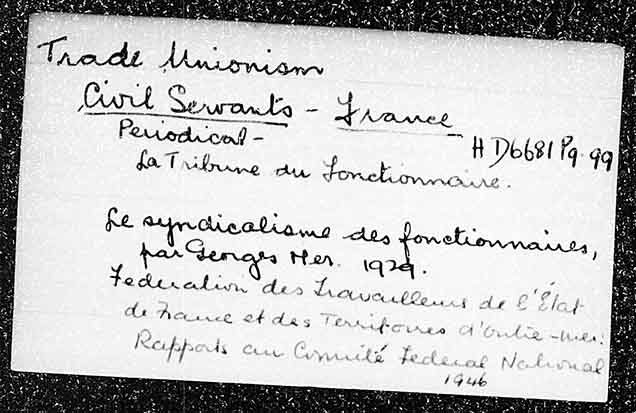 Trade Unionism
Civil Servants - France
Periodical -
HD6681 Pg. 99
La Tribune du fonctionnaire.
Le syndicalisme des fonctionnaires,
par Georges Mer. 1929.
Federation des Travailleurs de l'État
de France et des Territoires d'outre-mer.
Rapports au Comité Federal National
1946